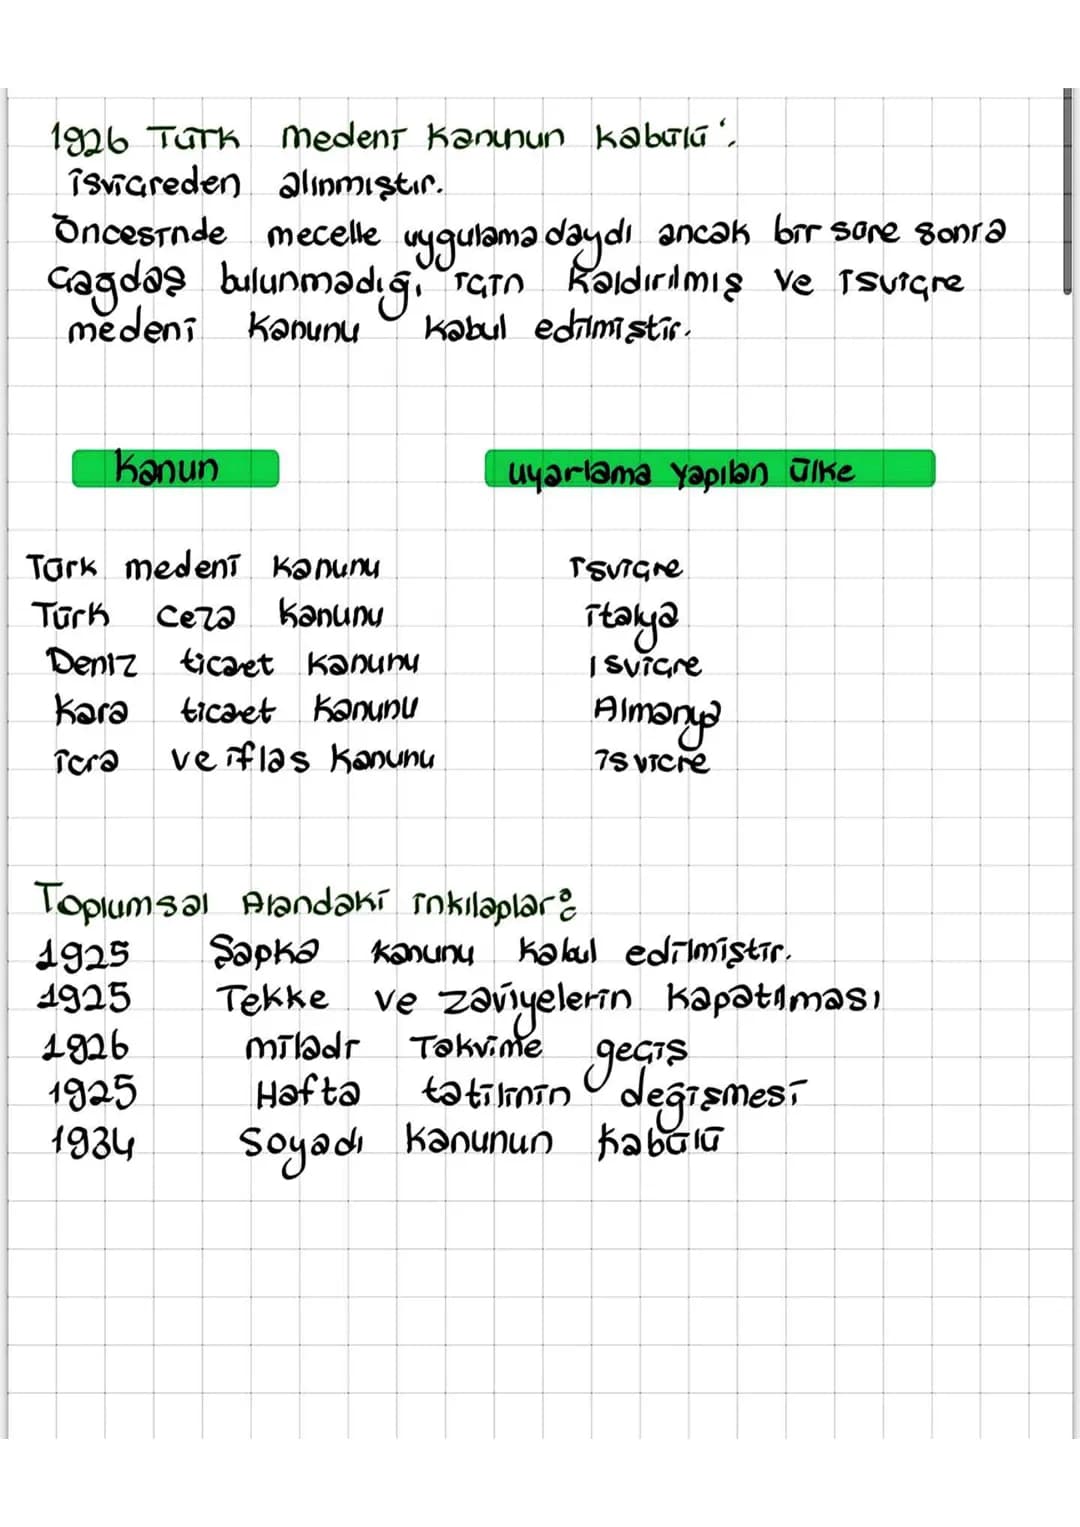 1926 Türk medeni Kanunun kabulü:
İsviçreden alınmıştır.
Öncesinde mecelle uygulamadaydı ancak bir süre sonra
Çağdaş bulunmadığı için Kaldırılmış ve İsviçre
medeni Kanunu Kabul edilmiştir.
Kanun
uyarlama yapılan ülke
Türk medeni Kanunu
İsviçre
Türk Ceza Kanunu
İtalya
Deniz ticaet Kanunu
Isviçre
Kara ticaet Kanunu
Almanya
İcra ve iflas Kanunu
İsvicre
Toplumsal Alandaki inkılaplar:
1925 Şapka Kanunu Kabul edilmiştir.
1925 Tekke ve zaviyelerin Kapatılması
1926 miladi Takvime geçiş
1925 Hafta tatilinin değişmesi
1934 Soyadı Kanunun Kabülü